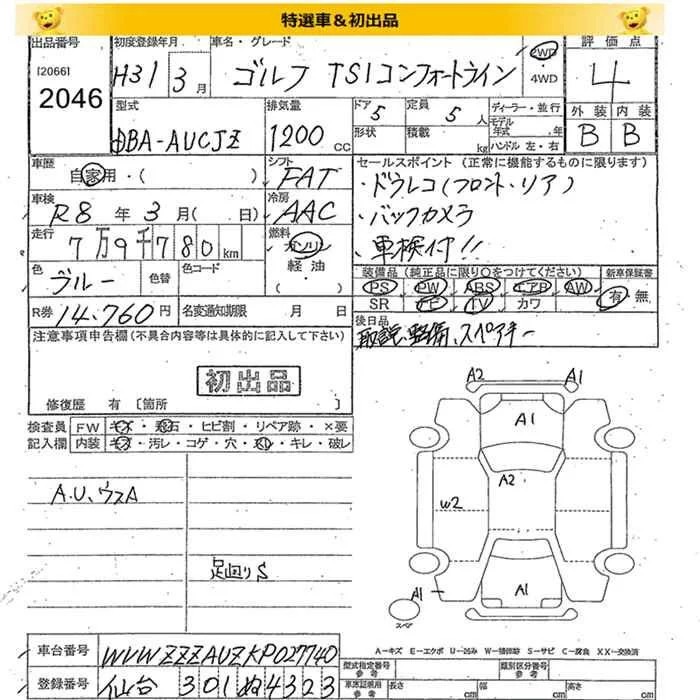 特選車&初出品
出品番号
[2066]
2046
初度登録年月
H31 3月
車名・グレード
ゴルフ TSIコンフォートライン
2WD
4WD
評価点
4
外装 内装
B B
型式
DBA-AUCJZ
排気量
1200 CC
ドア 5
定員 5人
形状
積載 kg
ディーラー・並行
モデル年式 年
ハンドル 左・右
車歴
自家用・( )
シフト
FAT
車検
R8 年 3月( 日)
冷房
AAC
走行
7万9千780km
燃料
ガソリン
軽油
( )
色
ブルー
色替
色コード
R券 14,760円
名変通知期限 月 日
セールスポイント (正常に機能するものに限ります)
・ドラレコ(フロント・リア)
・バックカメラ
・車検付!!
装備品(純正品に限り○をつけてください)
新車保証書
PS PW ABS エアB AW
SR ナビ TV カワ
有・無
後日品
取説、整備、スペアキー
注意事項申告欄(不具合内容等は具体的に記入して下さい)
初出品
修復歴 有 〔箇所
検査員記入欄
FW キズ・飛石・ヒビ割・リペア跡・×要
内装 キズ・汚レ・コゲ・穴・スレ・キレ・破レ
A.U、ウスA
足回りS
A2 A1
A1
A2
W2
A1
A1
スペア
A−キズ E−エクボ U−凹み W−補修跡 S−サビ C−腐食 XX−交換済
車台番号
WVWZZZAUZKP027740
登録番号
仙台 301 ぬ 4323
型式指定番号
参考
類別区分番号
参考
車庫証明用
参考
長さ cm
幅 cm
高さ cm